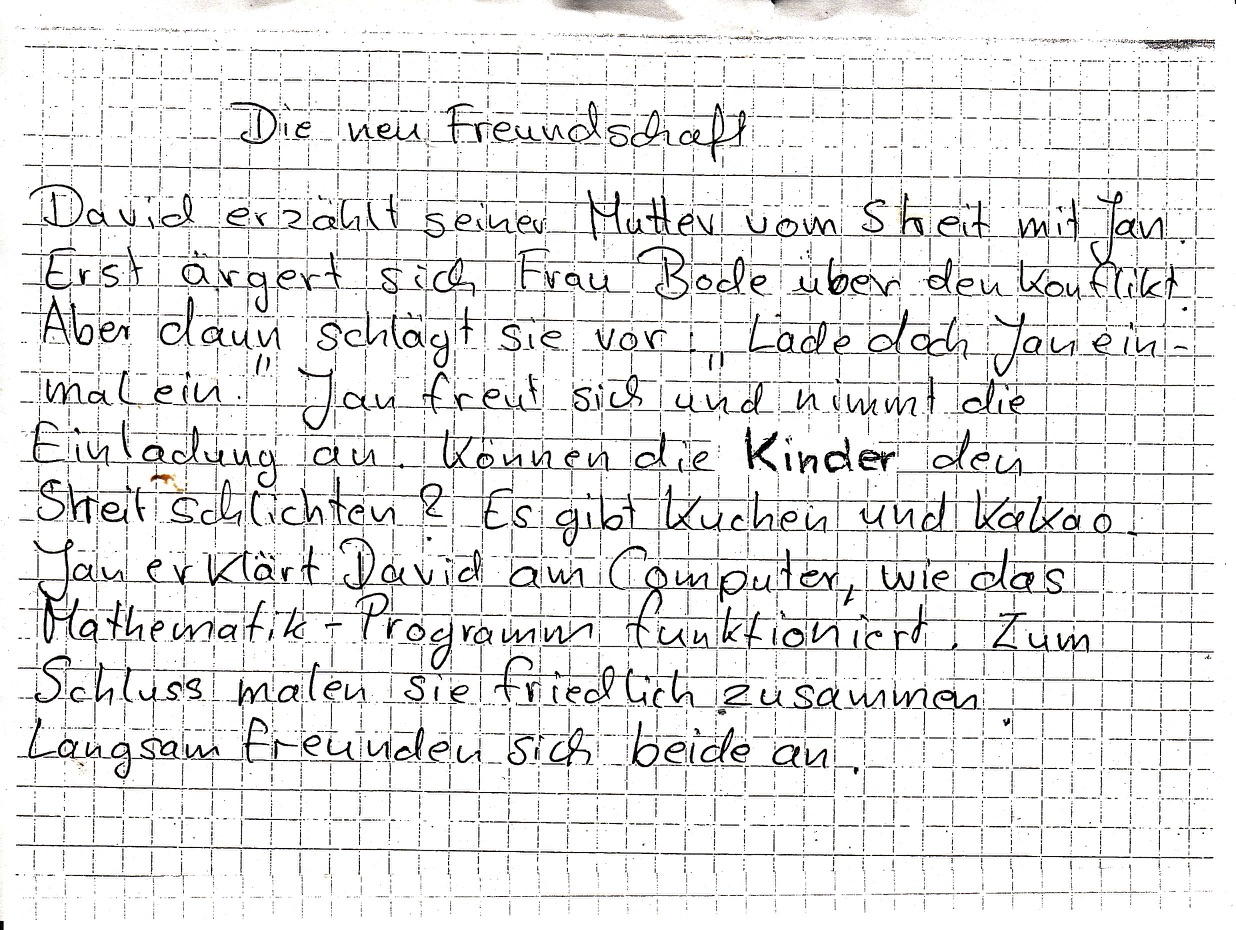 Die neu Freundschaft
David erzählt seiner Mutter vom Streit mit Jan.
Erst ärgert sich Frau Bode über den Konflikt.
Aber dann schlägt sie vor: „Lade doch Jan ein-
mal ein." Jan freut sich und nimmt die
Einladung an. Können die Kinder den
Streit schlichten? Es gibt Kuchen und Kakao.
Jan erklärt David am Computer, wie das
Mathematik-Programm funktioniert. Zum
Schluss malen sie friedlich zusammen.
Langsam freunden sich beide an.